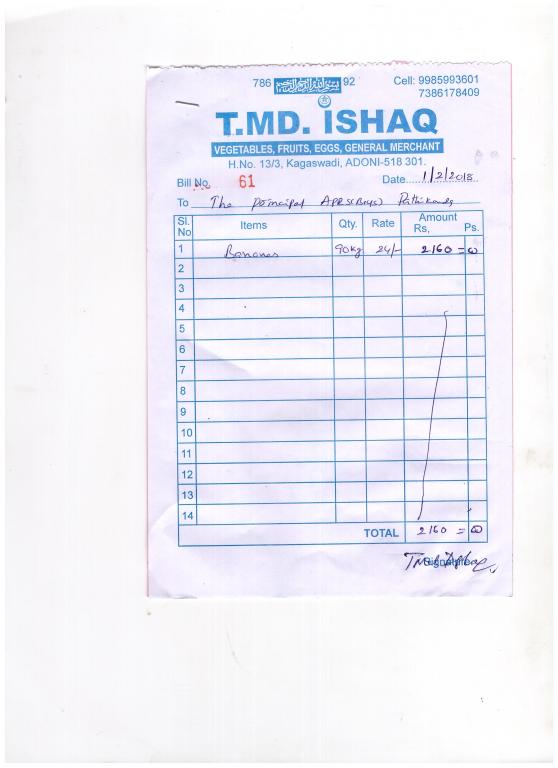 786 92 Cell: 9985993601
7386178409
T.MD. ISHAQ
VEGETABLES, FRUITS, EGGS, GENERAL MERCHANT
H.No. 13/3, Kagaswadi, ADONI-518 301.
Bill No. 61 Date 1/2/2018
To The principal APRS(Boys)
Sl. No Items Qty. Rate Amount Rs, Ps.
1 Bananas 90kg 24/- 2160 = 00
2
3
4
5
6
7
8
9
10
11
12
13
14
TOTAL 2160 = 00
Signature